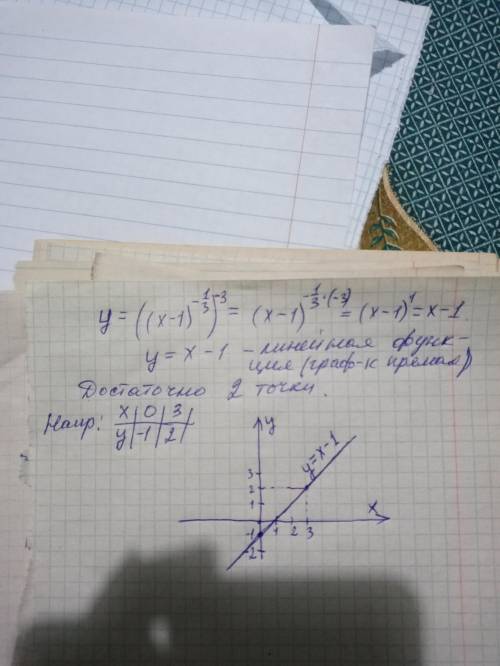 y = ((x-1)^{-1/3})^{-3} = (x-1)^{-1/3·(-3)} = (x-1)^1 = x-1
y = x - 1 - линейная функ-
ция (граф-к прямая)
Достаточно 2 точки.
Напр: x | 0 | 3 |
y | -1 | 2 |
y
y=x-1
3
2
1
x
1 2 3
-1
-2